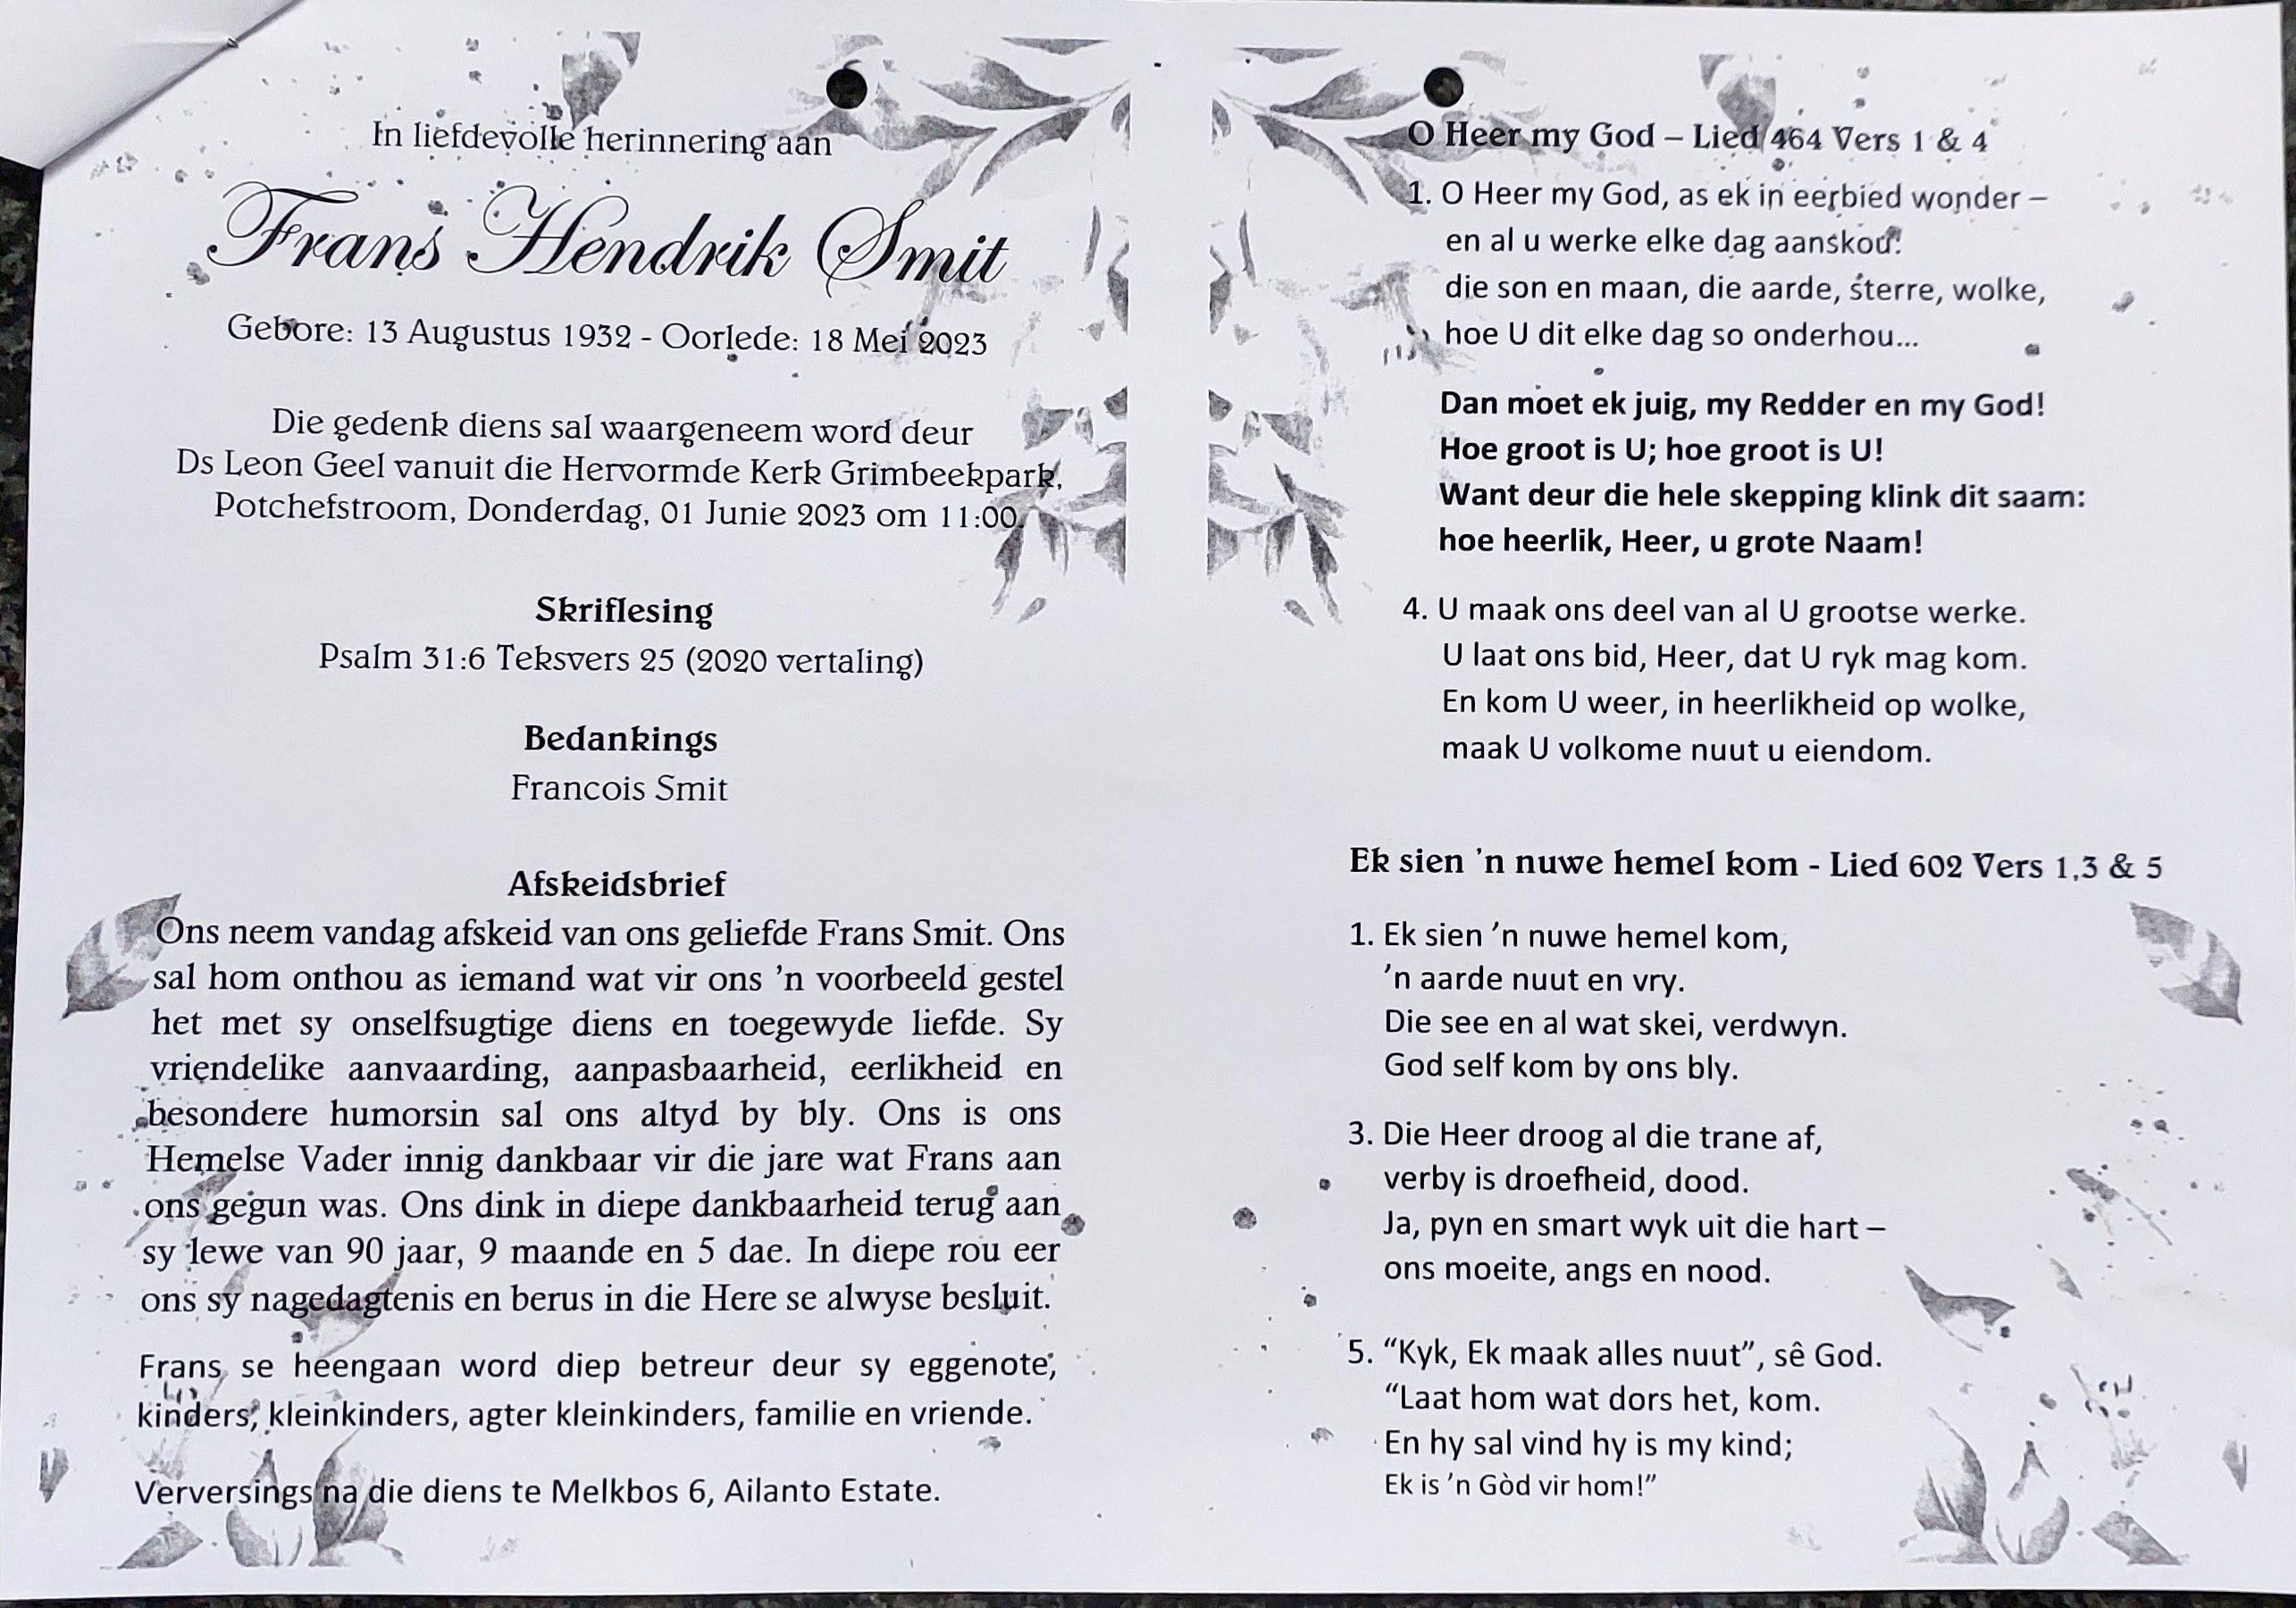 In liefdevolle herinnering aan
Frans Hendrik Smit
Gebore: 13 Augustus 1932 - Oorlede: 18 Mei 2023
Die gedenk diens sal waargeneem word deur
Ds Leon Geel vanuit die Hervormde Kerk Grimbeekpark,
Potchefstroom, Donderdag, 01 Junie 2023 om 11:00.
Skriflesing
Psalm 31:6 Teksvers 25 (2020 vertaling)
Bedankings
Francois Smit
Afskeidsbrief
Ons neem vandag afskeid van ons geliefde Frans Smit. Ons
sal hom onthou as iemand wat vir ons 'n voorbeeld gestel
het met sy onselfsugtige diens en toegewyde liefde. Sy
vriendelike aanvaarding, aanpasbaarheid, eerlikheid en
besondere humorsin sal ons altyd by bly. Ons is ons
Hemelse Vader innig dankbaar vir die jare wat Frans aan
ons gegun was. Ons dink in diepe dankbaarheid terug aan
sy lewe van 90 jaar, 9 maande en 5 dae. In diepe rou eer
ons sy nagedagtenis en berus in die Here se alwyse besluit.
Frans se heengaan word diep betreur deur sy eggenote,
kinders, kleinkinders, agter kleinkinders, familie en vriende.
Verversings na die diens te Melkbos 6, Ailanto Estate.
O Heer my God – Lied 464 Vers 1 & 4
1. O Heer my God, as ek in eerbied wonder –
en al u werke elke dag aanskou:
die son en maan, die aarde, sterre, wolke,
hoe U dit elke dag so onderhou...
Dan moet ek juig, my Redder en my God!
Hoe groot is U; hoe groot is U!
Want deur die hele skepping klink dit saam:
hoe heerlik, Heer, u grote Naam!
4. U maak ons deel van al U grootse werke.
U laat ons bid, Heer, dat U ryk mag kom.
En kom U weer, in heerlikheid op wolke,
maak U volkome nuut u eiendom.
Ek sien 'n nuwe hemel kom - Lied 602 Vers 1,3 & 5
1. Ek sien 'n nuwe hemel kom,
'n aarde nuut en vry.
Die see en al wat skei, verdwyn.
God self kom by ons bly.
3. Die Heer droog al die trane af,
verby is droefheid, dood.
Ja, pyn en smart wyk uit die hart –
ons moeite, angs en nood.
5. “Kyk, Ek maak alles nuut”, sê God.
“Laat hom wat dors het, kom.
En hy sal vind hy is my kind;
Ek is 'n Gòd vir hom!”